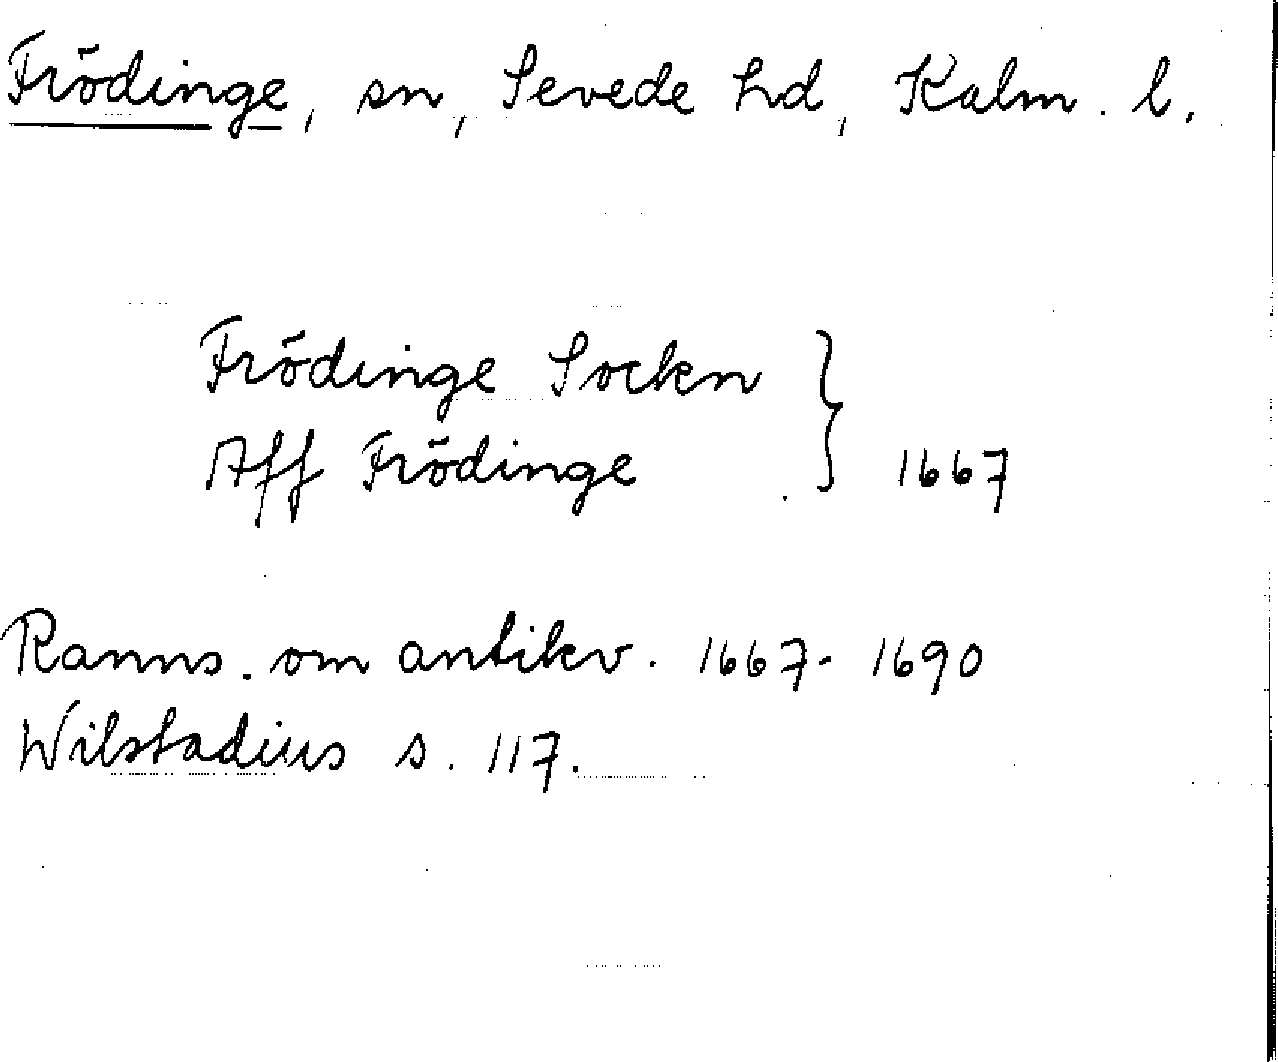 Frödinge, sn, Sevede hd, Kalm. l.
Frödinge Sockn
Aff Frödinge } 1667
Ranns. om antikv. 1667-1690
Wilstadius s. 117.